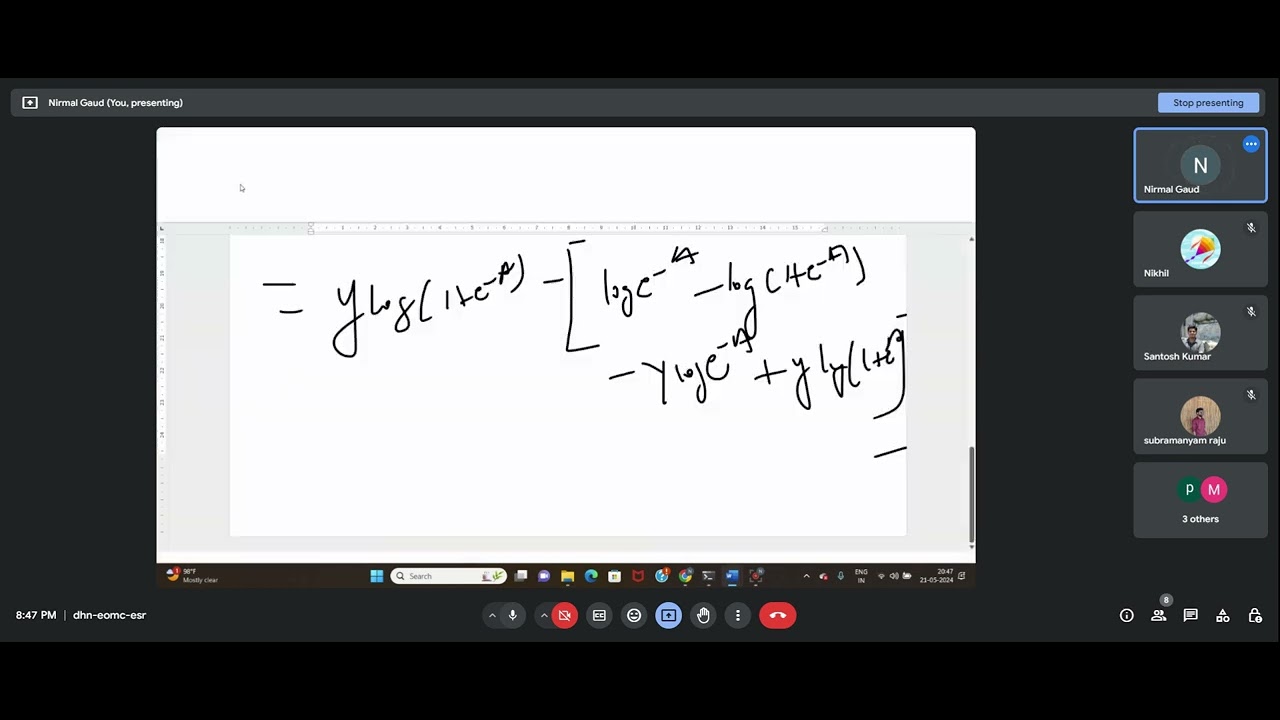 Nirmal Gaud (You, presenting)
Stop presenting
N
Nirmal Gaud
Nikhil
Santosh Kumar
subramanyam raju
P M
3 others
= y log(1+e^-A) - [ log e^-A - log(1+e^-A)
- y log e^-A + y log(1+e^-A) ]
98°F
Mostly clear
Search
ENG
IN
20:47
21-05-2024
8:47 PM | dhn-eomc-esr
8